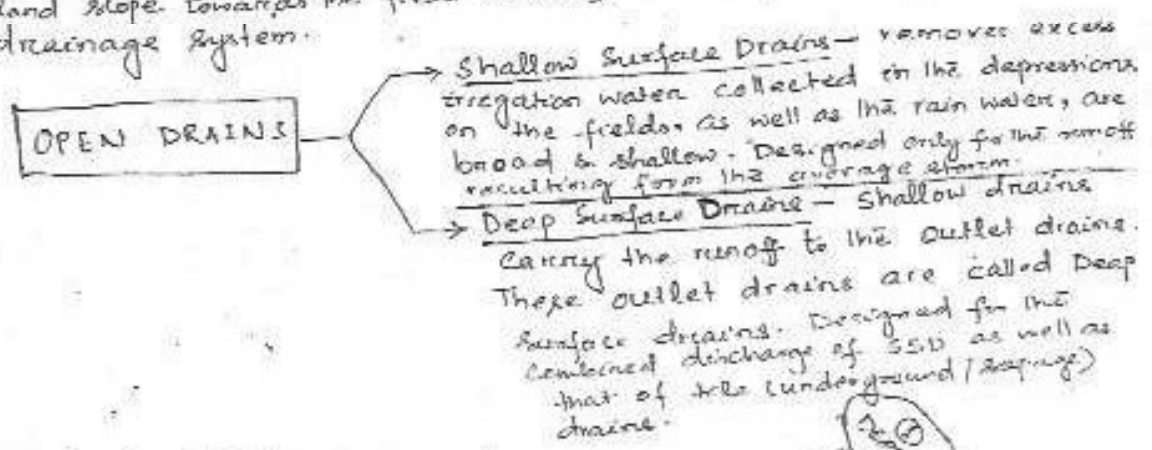 land slope towards the
drainage system.
OPEN DRAINS
Shallow Surface Drains – removes excess
irregation water collected in the depressions
on the fields, as well as the rain water, are
broad & shallow. Designed only for the runoff
resulting from the average storm.
Deep Surface Drains – Shallow drains
carry the runoff to the outlet drains.
These outlet drains are called Deep
surface drains. Designed for the
combined discharge of SSD as well as
that of tile (underground/seepage)
drains.